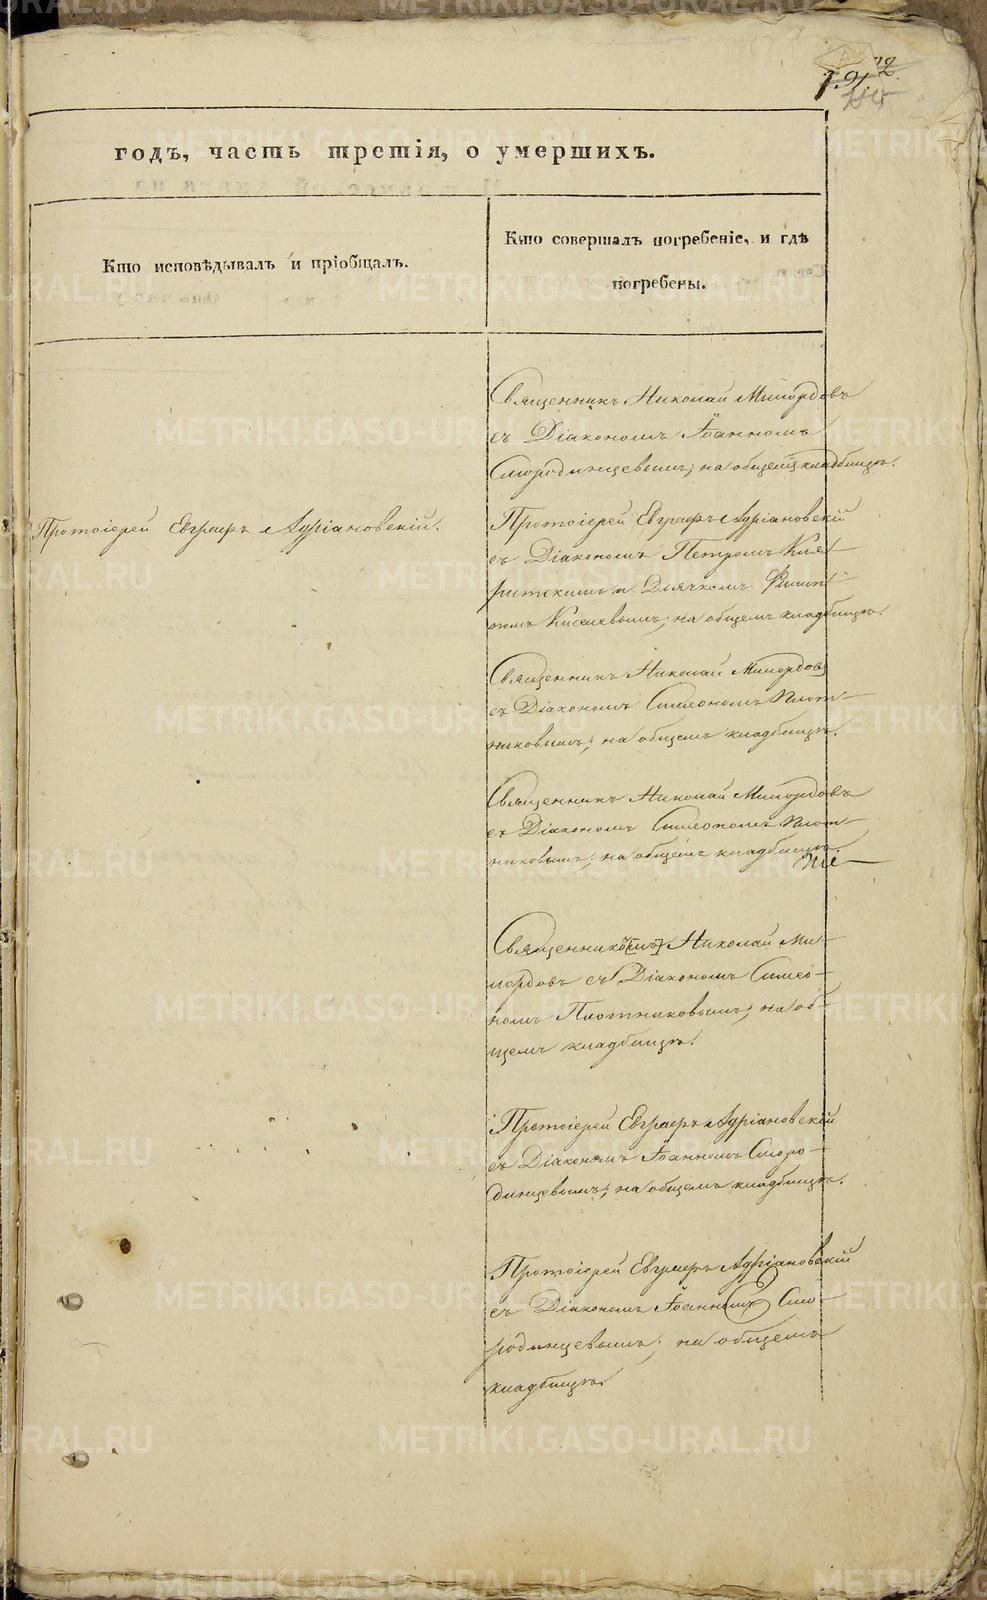 годъ, часть третія, о умершихъ.
Кто исповѣдывалъ и пріобщалъ.
Кто совершалъ погребеніе, и гдѣ
погребены.
Священникъ Николай Милордовъ
съ Діакономъ Іоанномъ
Смородинцевымъ; на общемъ кладбищѣ.
Протоіерей Евграфъ Адріановскій.
Протоіерей Евграфъ Адріановскій
съ Діакономъ Петромъ
и Дьячкомъ Филип
помъ Киселевымъ; на общемъ кладбищѣ.
Священникъ Николай Милордовъ
съ Діакономъ Симеономъ Плот-
никовымъ; на общемъ кладбищѣ.
Священникъ Николай Милордовъ
съ Діакономъ Симеономъ Плот-
никовымъ; на общемъ кладбищѣ.
Священник Николай Ми-
лордовъ съ Діакономъ Симео-
номъ Плотниковымъ; на об-
щемъ кладбищѣ.
Протоіерей Евграфъ Адріановскій
съ Діакономъ Іоанномъ Сморо-
динцевымъ; на общемъ кладбищѣ.
Протоіерей Евграфъ Адріановскій
съ Діакономъ Іоанномъ Смо-
родинцевымъ; на общемъ
кладбищѣ.
METRIKI.GASO-URAL.RU